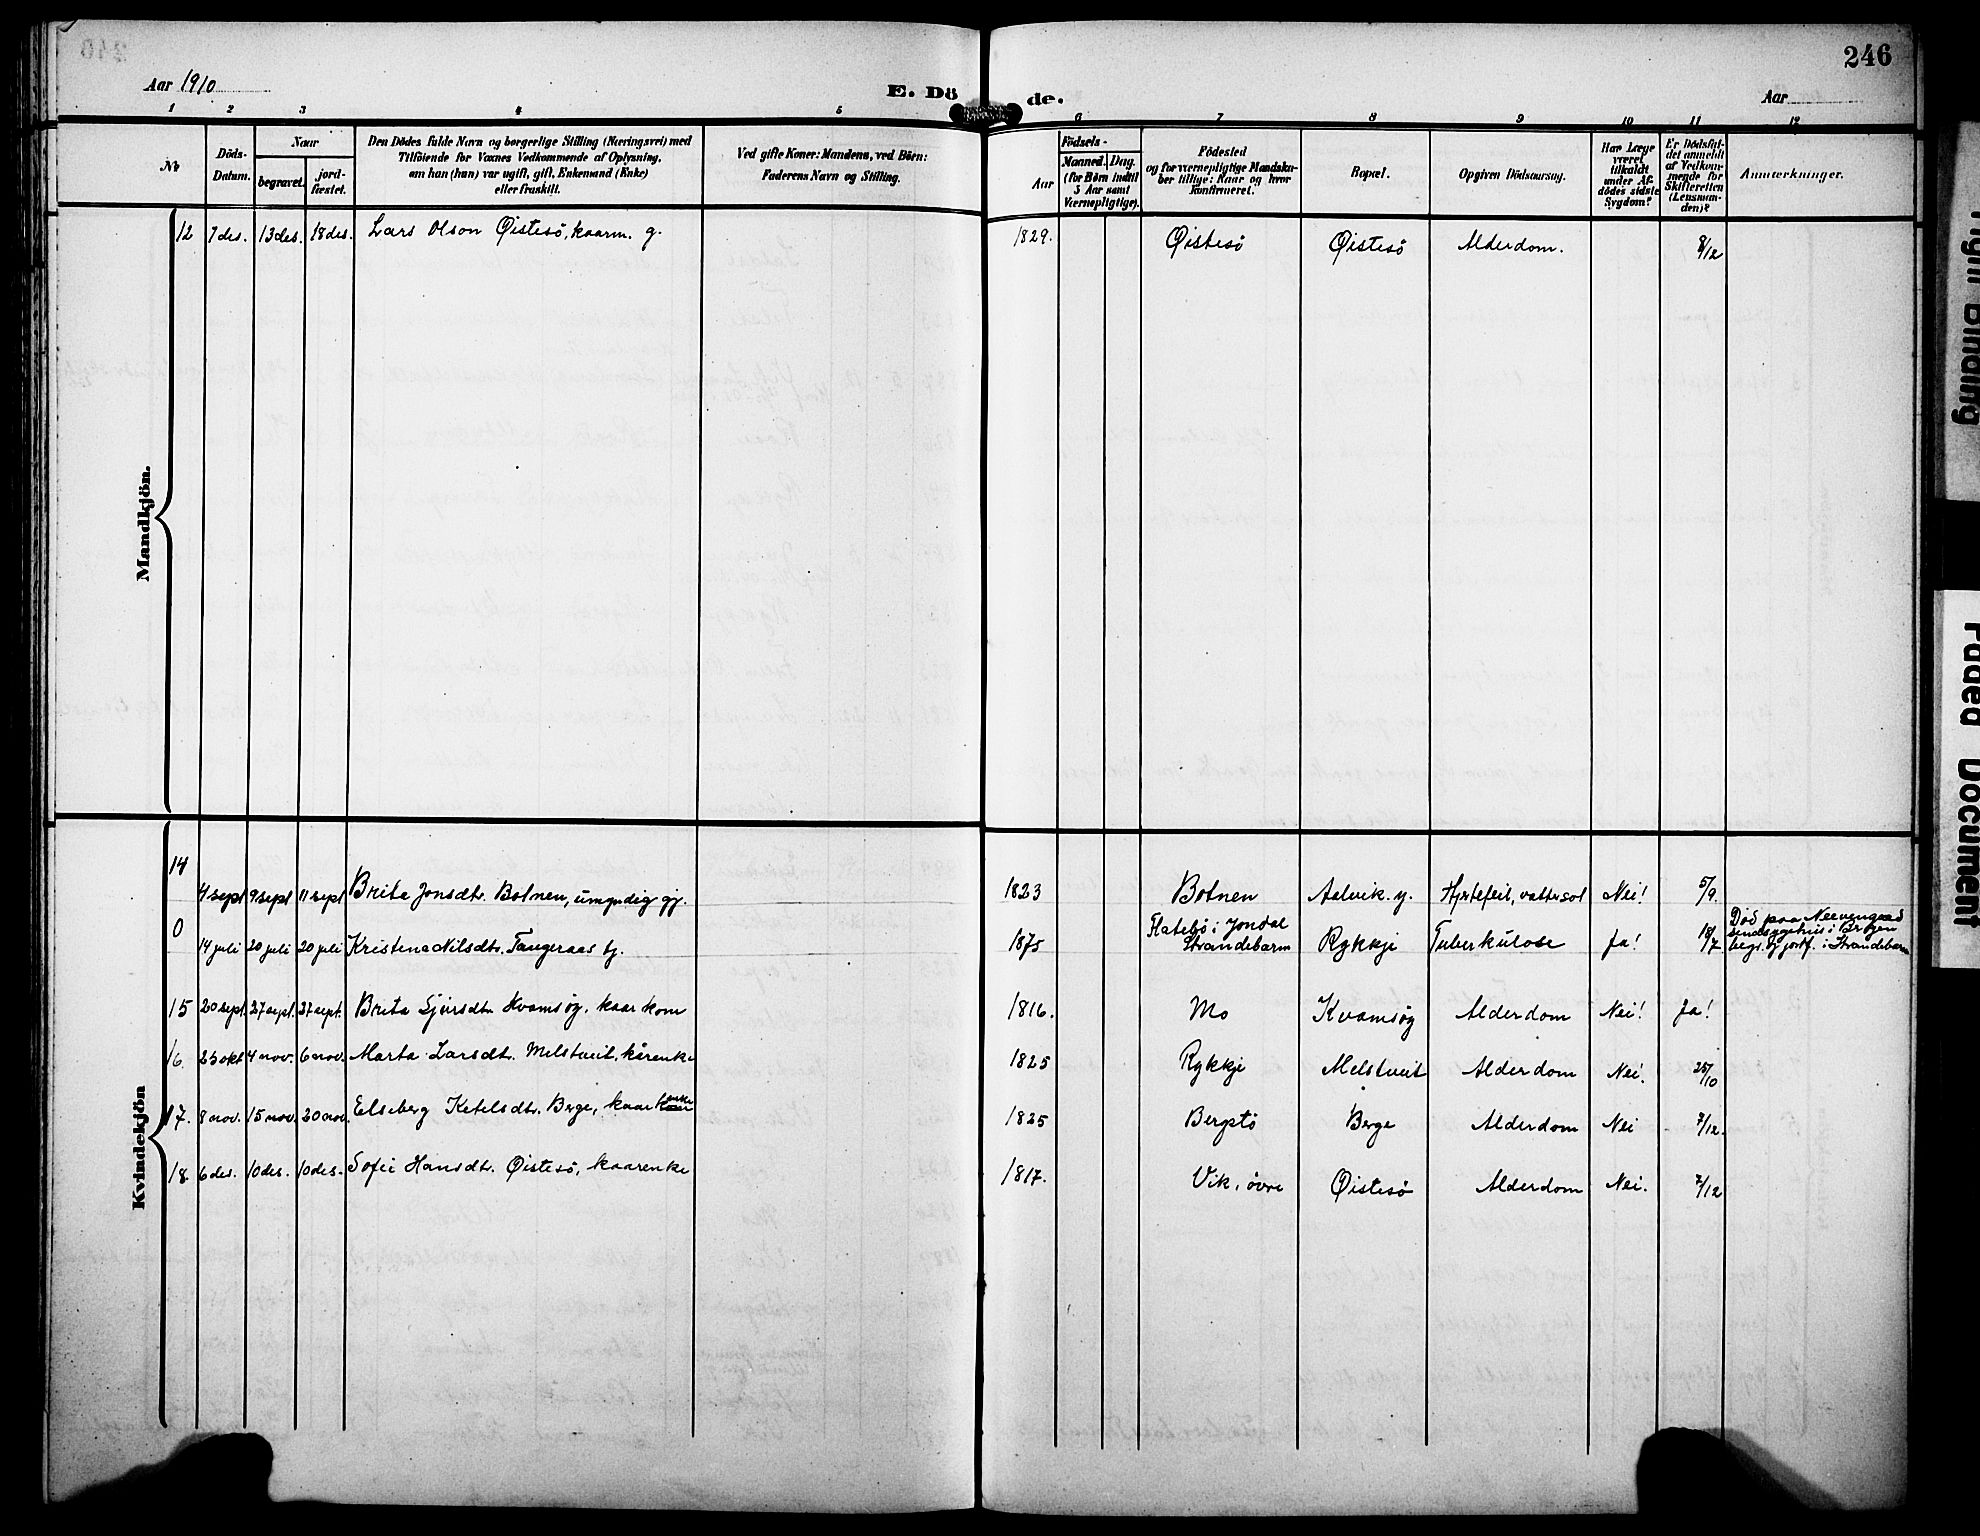 246
Aar 1910
E. Dö de.
Aar
1 2 3 4 5 6 7 8 9 10 11 12
No
Döds-
Datum.
Naar
begravet.
jord-
fæstet.
Den Dödes fulde Navn og borgerlige Stilling (Næringsvei) med
Tilföiende for Voxnes Vedkommende af Oplysning,
om han (hun) var ugift, gift, Enkemand (Enke)
eller fraskilt.
Ved gifte Koner: Mandens, ved Börn:
Faderens Navn og Stilling.
Födsels-
Aar
Maaned. Dag.
(for Börn indtil
3 Aar samt
Værnepligtige).
Födested
og for værnepligtige Mandska-
ber tillige: Naar og hvor
konfirmeret.
Bopæl.
Opgiven Dödsaarsag.
Har Læge
været
tilkaldt
under Af-
dödes sidste
Sygdom?
Er Dödsfal-
det anmeldt
af Vedkom-
mende for
Skifteretten
(Lensman-
den)?
Anmærkninger.
Mandkjön.
12 7 des. 13 des. 18 des. Lars Olson Øistesö, kaarm. g. 1829. Øistesö Øistesö Alderdom. 8/12
Kvindekjön
14 4 sept 9 sept 11 sept Brita Jonsdtr. Botnen, umyndig gj. 1823 Botnen Aalvik. y. Hjertefeil, vattersot Nei! 5/9.
0 14 juli 20 juli 20 juli Kristena Nilsdtr. Tangeraas tj. 1875 Flatebö i Jondal
Strandebarm Rykkje Tuberkulose Ja! 18/7 Död paa Neevengaard
sindssygehus i Bergen
begr. og jordf. i Strandebarm
15 20 sept. 27 sept. 27 sept. Brita Sjursdtr. Kvamsøg, kaarkone 1816. Mo Kvamsøg Alderdom Nei! Ja!
16. 23 okt 4 nov. 6 nov. Marta Larsdtr. Melstveit, kårenke 1825 Rykkje Melstveit Alderdom Nei. 25/10
17. 8 nov. 15 nov. 20 nov. Elseberg Ketelsdtr. Berge, kaar enke 1825 Berge Alderdom Nei 7/12.
18. 6 des. 10 des. 10 des. Sofie Hansdtr. Øistesö, kaarenke 1817. Vik, övre Øistesö Alderdom Nei. 7/12
Tight Binding
Faded Document